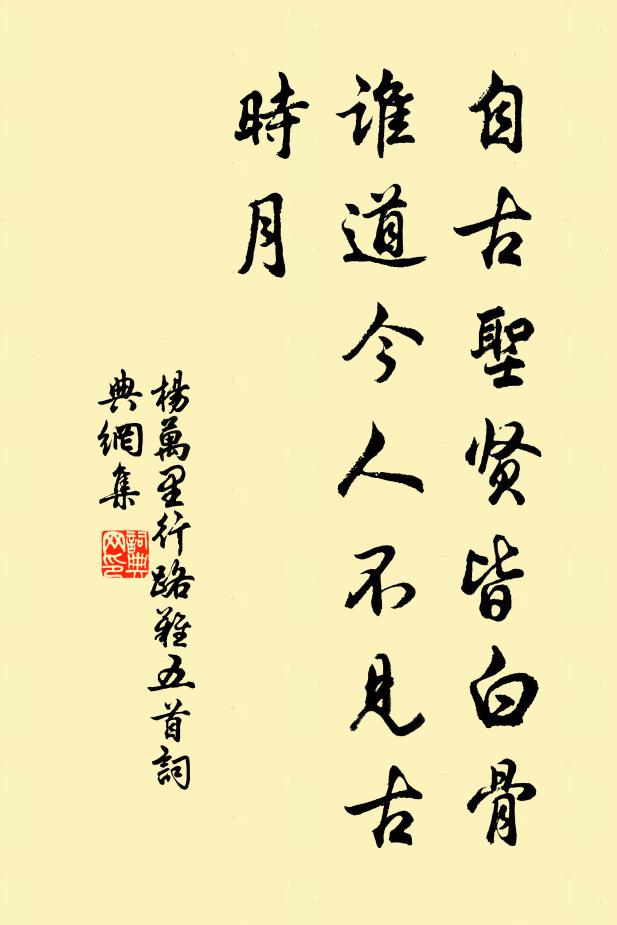 自古聖贤皆白骨
谁道今人不見古
時月
楊萬里行路難五首詞
典網集
詞典
网印